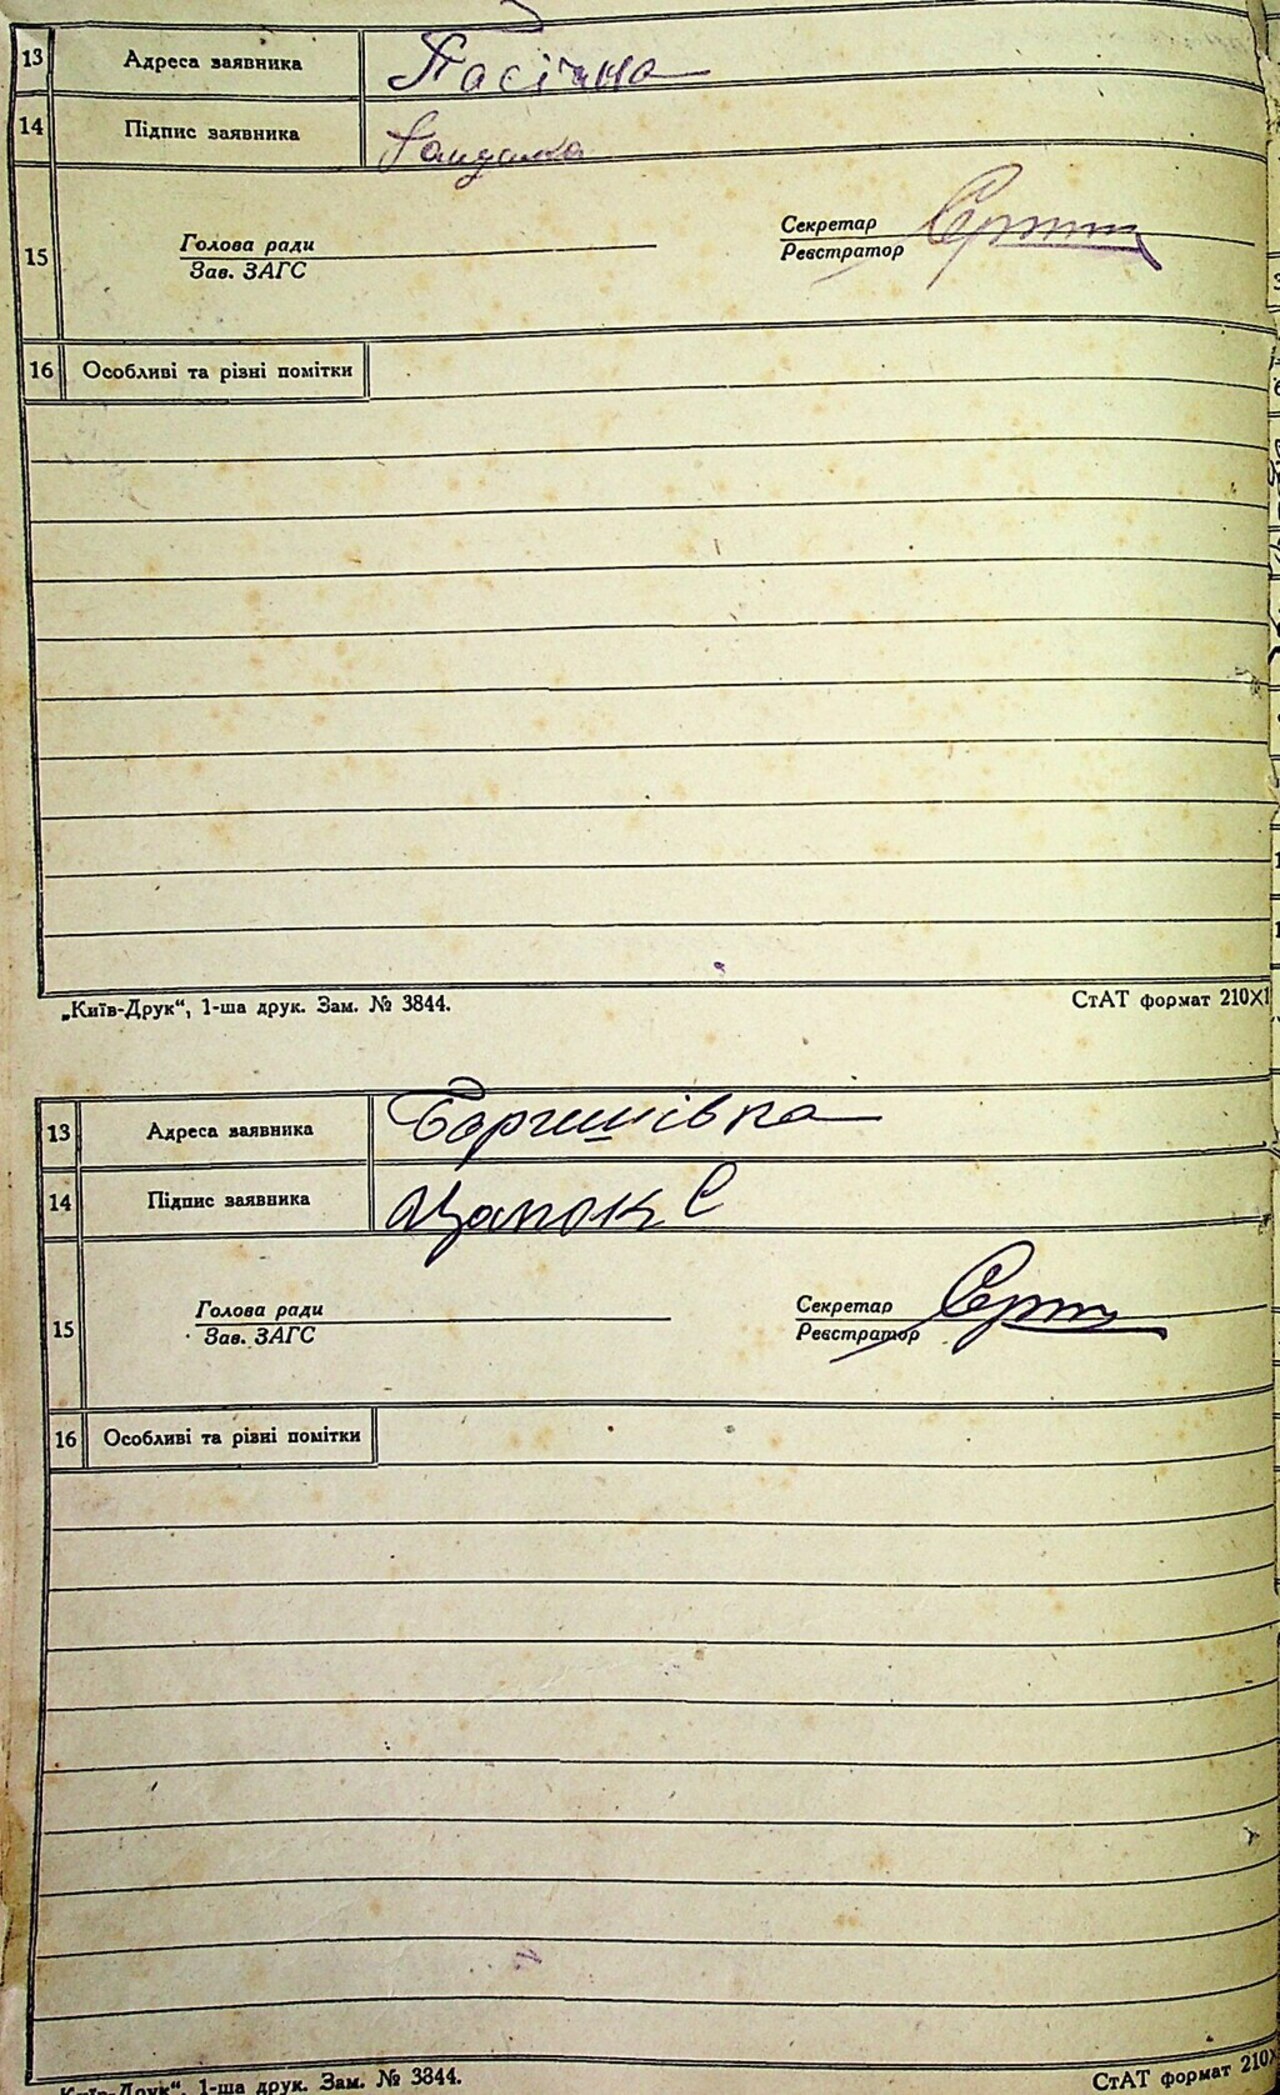 13 Адреса заявника Пасічна
14 Підпис заявника
15 Голова ради Секретар
Зав. ЗАГС Реєстратор
16 Особливі та різні помітки
„Київ-Друк“, 1-ша друк. Зам. № 3844. СтАТ формат 210×1
13 Адреса заявника
14 Підпис заявника Цапок С
15 Голова ради Секретар
Зав. ЗАГС Реєстратор
16 Особливі та різні помітки
Київ-Друк“, 1-ша друк. Зам. № 3844. СтАТ формат 210×